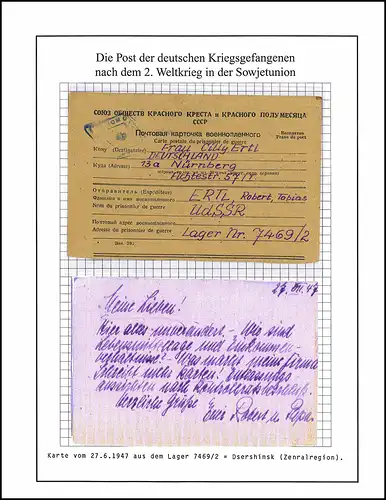 Die Post der deutschen Kriegsgefangenen
nach dem 2. Weltkrieg in der Sowjetunion
СОЮЗ ОБЩЕСТВ КРАСНОГО КРЕСТА и КРАСНОГО ПОЛУМЕСЯЦА
СССР
Почтовая карточка военнопленного
Carte postale du prisonnier de guerre
Бесплатно
Franc de port
Кому (Destinataire) Frau Lilly Ertl
DEUTSCHLAND
Куда (Adresse) 13a Nürnberg
Отправитель (Expéditeur)
Фамилия и имя военнопленного
Nom du prisonnier de guerre
ERTL, Robert, Tobias
UdSSR
Почтовый адрес военнопленного
Adresse du prisonnier de guerre Lager Nr. 7469/2
Meine Lieben!
Hier alles unverändert. - Wie sind
Lebensmittellage und Einkommen-
verhältnisse? - Was macht meine Firma
Schreibt mehr Karten!
Herzliche Grüße
Euer Robert u. Papa
Karte vom 27.6.1947 aus dem Lager 7469/2 = Dsershinsk (Zenralregion).